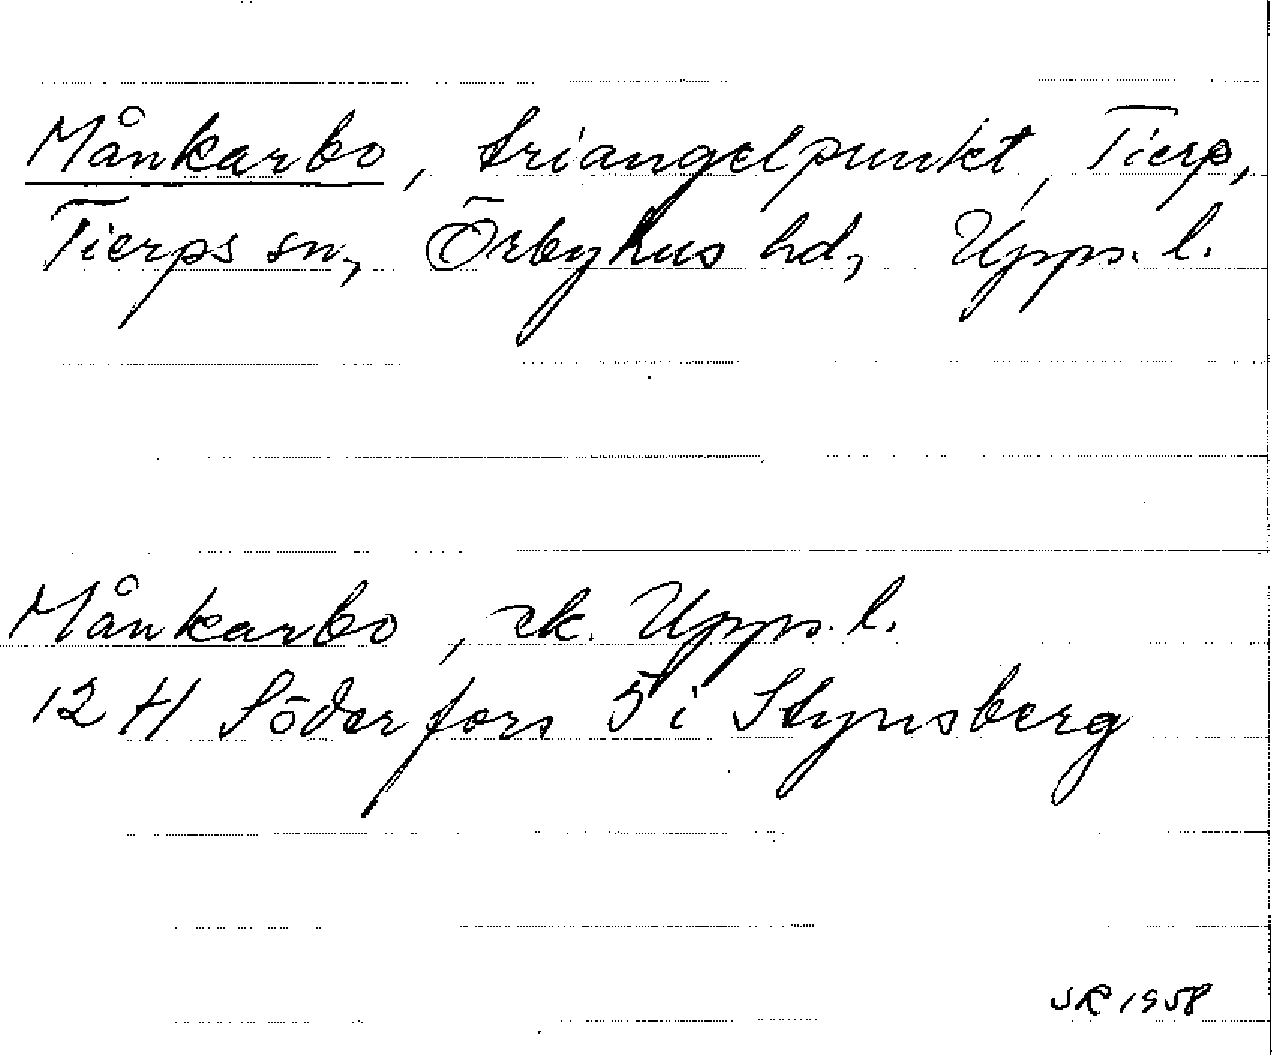 Månkarbo, triangelpunkt, Tierp,
Tierps sn, Örbyhus hd, Upps. l.
Månkarbo, rk. Upps. l.
12 H Söderfors 5 i Stynsberg
JR 1958